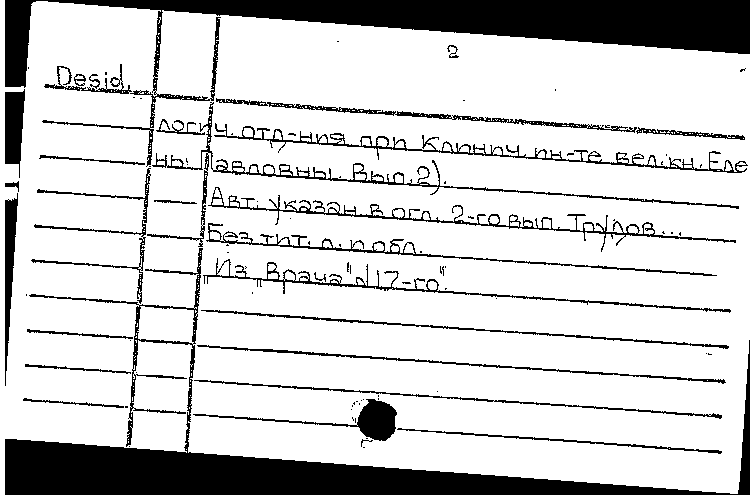 2
Desid.
логич. отд-ния при Клинич. ин-те вел. кн. Еле
ны Павловны. Вып. 2).
Авт. указан в огл. 2-го вып. Трудов...
Без тит. л. и обл.
"Из "Врача" № 17-го".